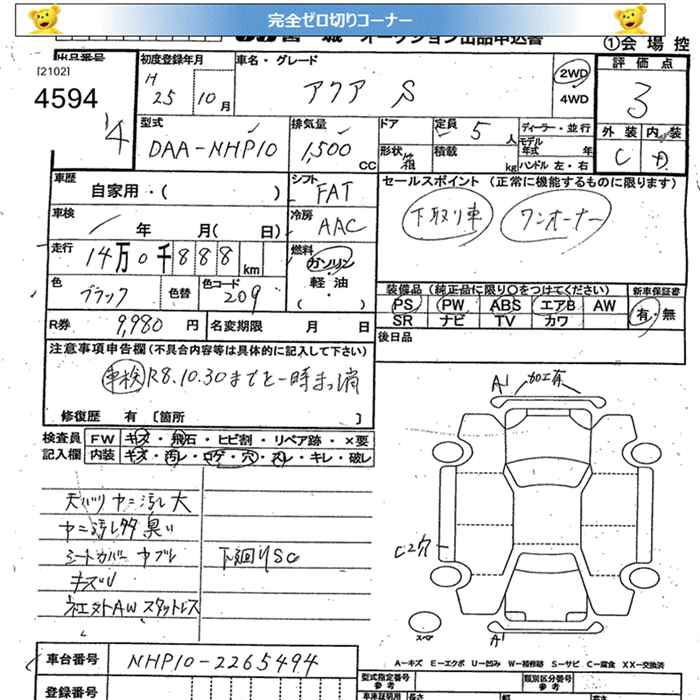 完全ゼロ切りコーナー
宮城 オークション出品申込書
①会場控
出品番号
[2102]
4594
初度登録年月
H 25 10月
車名・グレード
アクア S
2WD
4WD
評価点
3
型式
DAA-NHP10
排気量
1,500 CC
ドア
形状 箱
定員 5 人
積載 kg
ディーラー・並行
モデル年式 年
ハンドル 左・右
外装 内装
C D
車歴
自家用・( )
シフト
FAT
セールスポイント (正常に機能するものに限ります)
下取り車 ワンオーナー
車検
年 月( 日)
冷房
AAC
走行
14万0千888km
燃料
ガソリン
軽油
( )
色
ブラック
色替
色コード
209
装備品 (純正品に限り○をつけてください)
新車保証書
PS PW ABS エアB AW
SR ナビ TV カワ
有・無
R券 9,980円
名変期限 月 日
後日品
注意事項申告欄(不具合内容等は具体的に記入して下さい)
車検 R8.10.30まで 一時まっ消
修復歴 有 〔箇所 〕
検査員
記入欄
FW キズ・飛石・ヒビ割・リペア跡・×要
内装 キズ・汚レ・コゲ・穴・スレ・キレ・破レ
天バリ ヤニ汚レ大
ヤニ汚レ多 臭い
シートカバー ヤブレ
下廻りSC
キズU
社外AW スタットレス
A1 加工有
C2穴
スペア
A1
A-キズ E-エクボ U-凹み W-補修跡 S-サビ C-腐食 XX-交換済
車台番号
NHP10-2265494
登録番号
型式指定番号
参考
類別区分番号
参考
車庫証明用 長さ 幅 高さ